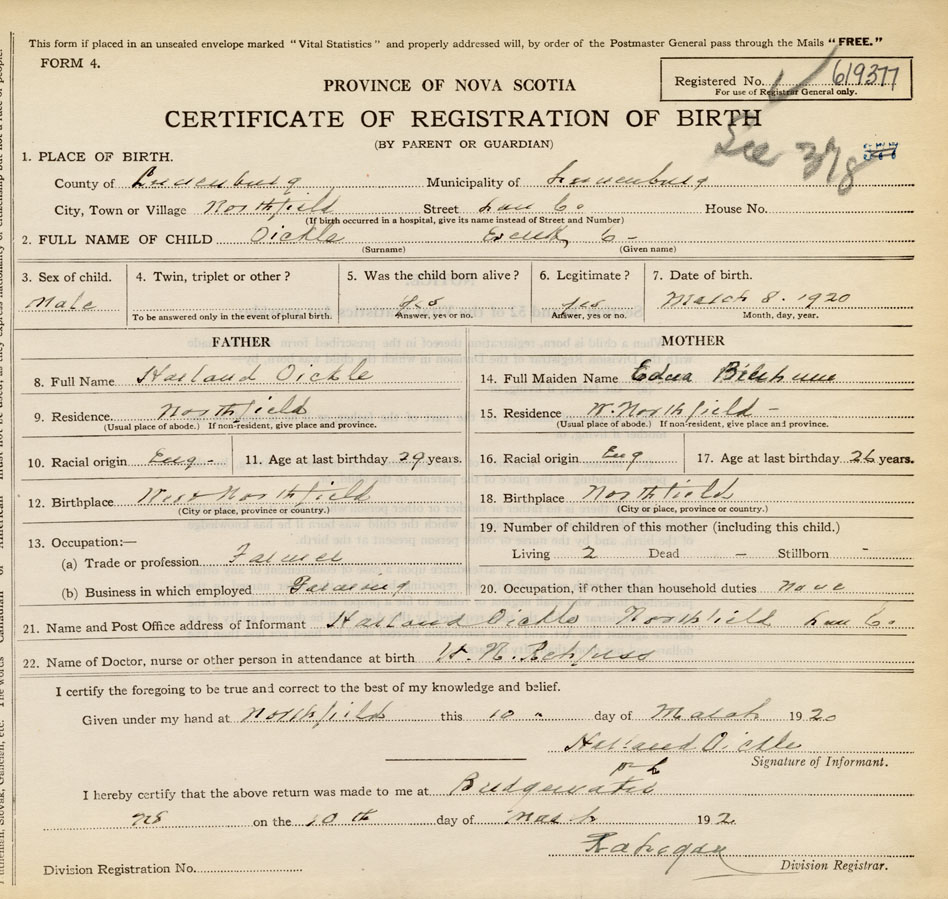 This form if placed in an unsealed envelope marked "Vital Statistics" and properly addressed will, by order of the Postmaster General pass through the Mails "FREE."
FORM 4.
Registered No. 619377
For use of Registrar General only.
PROVINCE OF NOVA SCOTIA
CERTIFICATE OF REGISTRATION OF BIRTH
(BY PARENT OR GUARDIAN)
See 378
1. PLACE OF BIRTH.
County of Lunenburg Municipality of Lunenburg
City, Town or Village Northfield Street Lun Co House No.
(If birth occurred in a hospital, give its name instead of Street and Number)
2. FULL NAME OF CHILD Oickle
(Surname) (Given name)
3. Sex of child. 4. Twin, triplet or other? 5. Was the child born alive? 6. Legitimate? 7. Date of birth.
Male yes yes March 8. 1920
To be answered only in the event of plural birth. Answer, yes or no. Answer, yes or no. Month, day, year.
FATHER MOTHER
8. Full Name Harland Oickle 14. Full Maiden Name Edna
9. Residence. Northfield 15. Residence W. Northfield -
(Usual place of abode.) If non-resident, give place and province. (Usual place of abode.) If non-resident, give place and province.
10. Racial origin Eng - 11. Age at last birthday 29 years. 16. Racial origin Eng 17. Age at last birthday 26 years.
12. Birthplace West Northfield 18. Birthplace Northfield
(City or place, province or country.) (City or place, province or country.)
19. Number of children of this mother (including this child.)
13. Occupation:—
(a) Trade or profession Farmer Living 2 Dead - Stillborn -
(b) Business in which employed Farming 20. Occupation, if other than household duties none
21. Name and Post Office address of Informant Harland Oickle Northfield Lun Co.
22. Name of Doctor, nurse or other person in attendance at birth W. N.
I certify the foregoing to be true and correct to the best of my knowledge and belief.
Given under my hand at Northfield this 10 day of March 1920
Harland Oickle
Signature of Informant.
I hereby certify that the above return was made to me at Bridgewater
NS on the 10th day of March 192
Division Registration No. Division Registrar.